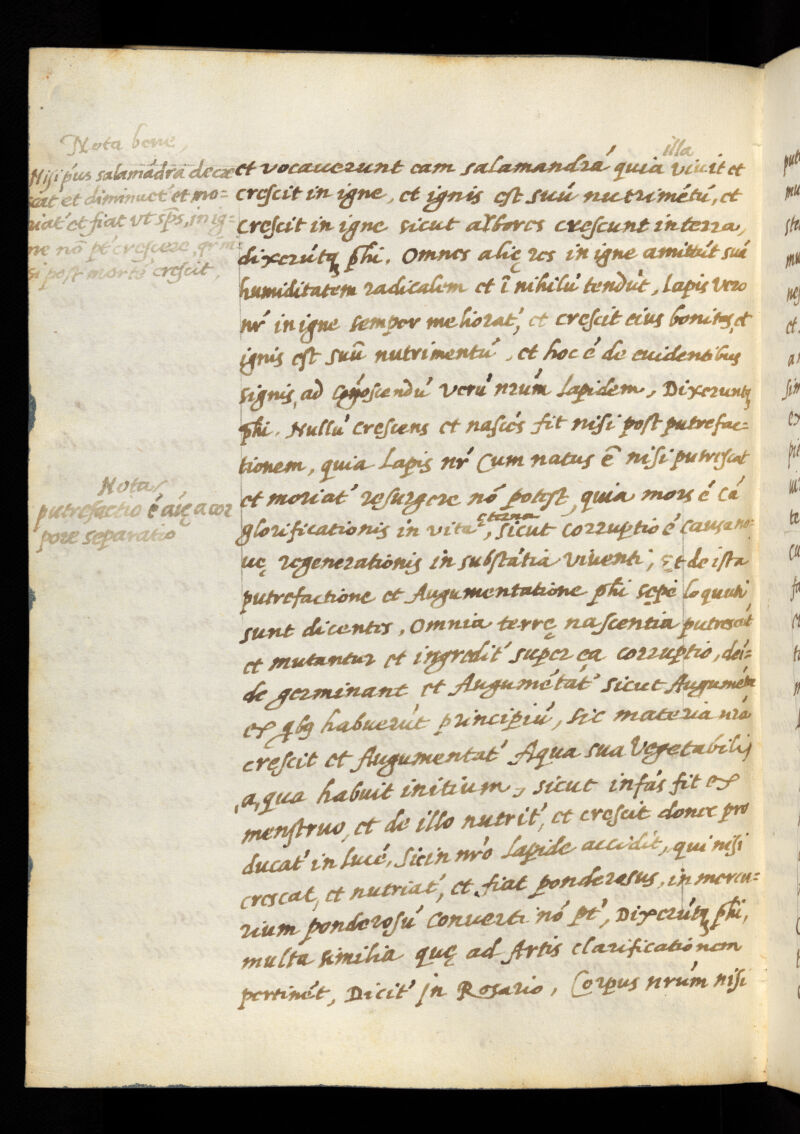 Nota bene,
Nisi p'us salamãdra decre
scat et diminuet' et mo-
riat' et fiat ut sp̃s, in ig-
ne nõ pt' crescere,
si post mortẽ crescit,
illa
et vocaverunt eam salamandrã quia vivit et
crescit in igne, et ignis est suũ nutrimẽtũ, et
crescit in igne sicut arbores crescunt in terra,
dixerũtq₃ ph̃i. Omnes alię res in igne amittũt suã
humiditatem radicalem et ĩ nihilũ tendũt, Lapis vero
nr̃ in igne semper meliorat', et crescit eius bonitas, et
ignis est suũ nutrimentũ, et hoc ẽ de evidentibus
signis, ad cog̃oscendũ verũ nrũm Lapidem, Dixeruntq₃
ph̃i. Nullũ cręscens et nascẽs fit nisi post putrefac-
tionem, quia Lapis nr̃ cum natus ẽ nisi putrescat
et moriat' ręsurgere nõ potest, quia mors ẽ cã
eterna
glorificationis in vitã, sicut corruptio ẽ causa no-
vę regenerationis in substãtia viventi, Et de ista
putrefactione et Augumentatione ph̃i sępe loquuti
sunt dicentes, Omnia terrę nascentia putrescũt
et mutantur et ingredit' super ea corruptio, deĩ-
de germinant et Augumẽtãt' sicut Augumẽta
ex qbɜ habuerũt principiũ, sic materia nr̃a
crescit et Augumentat' Aqua sua Vegetabili,
a, qua habuit initium, sicut infãs fit ex
menstruo, et de illo nutrit', et crescit donec pro
ducat' in lucẽ, sic in nr̃o Lapide accidit, qui nisi
crescat, et nutriat', et fiat ponderosus, in mercu-
rium ponderosũ converti nõ pt', Dixerũtq₃ ph̃i,
multa similia quę ad Artis clarificationem
pertinẽt, Dicit' in Rosario, Corpus nrũm nisi
Nota
putrefactio ẽ aĩę a cor
pore separatio